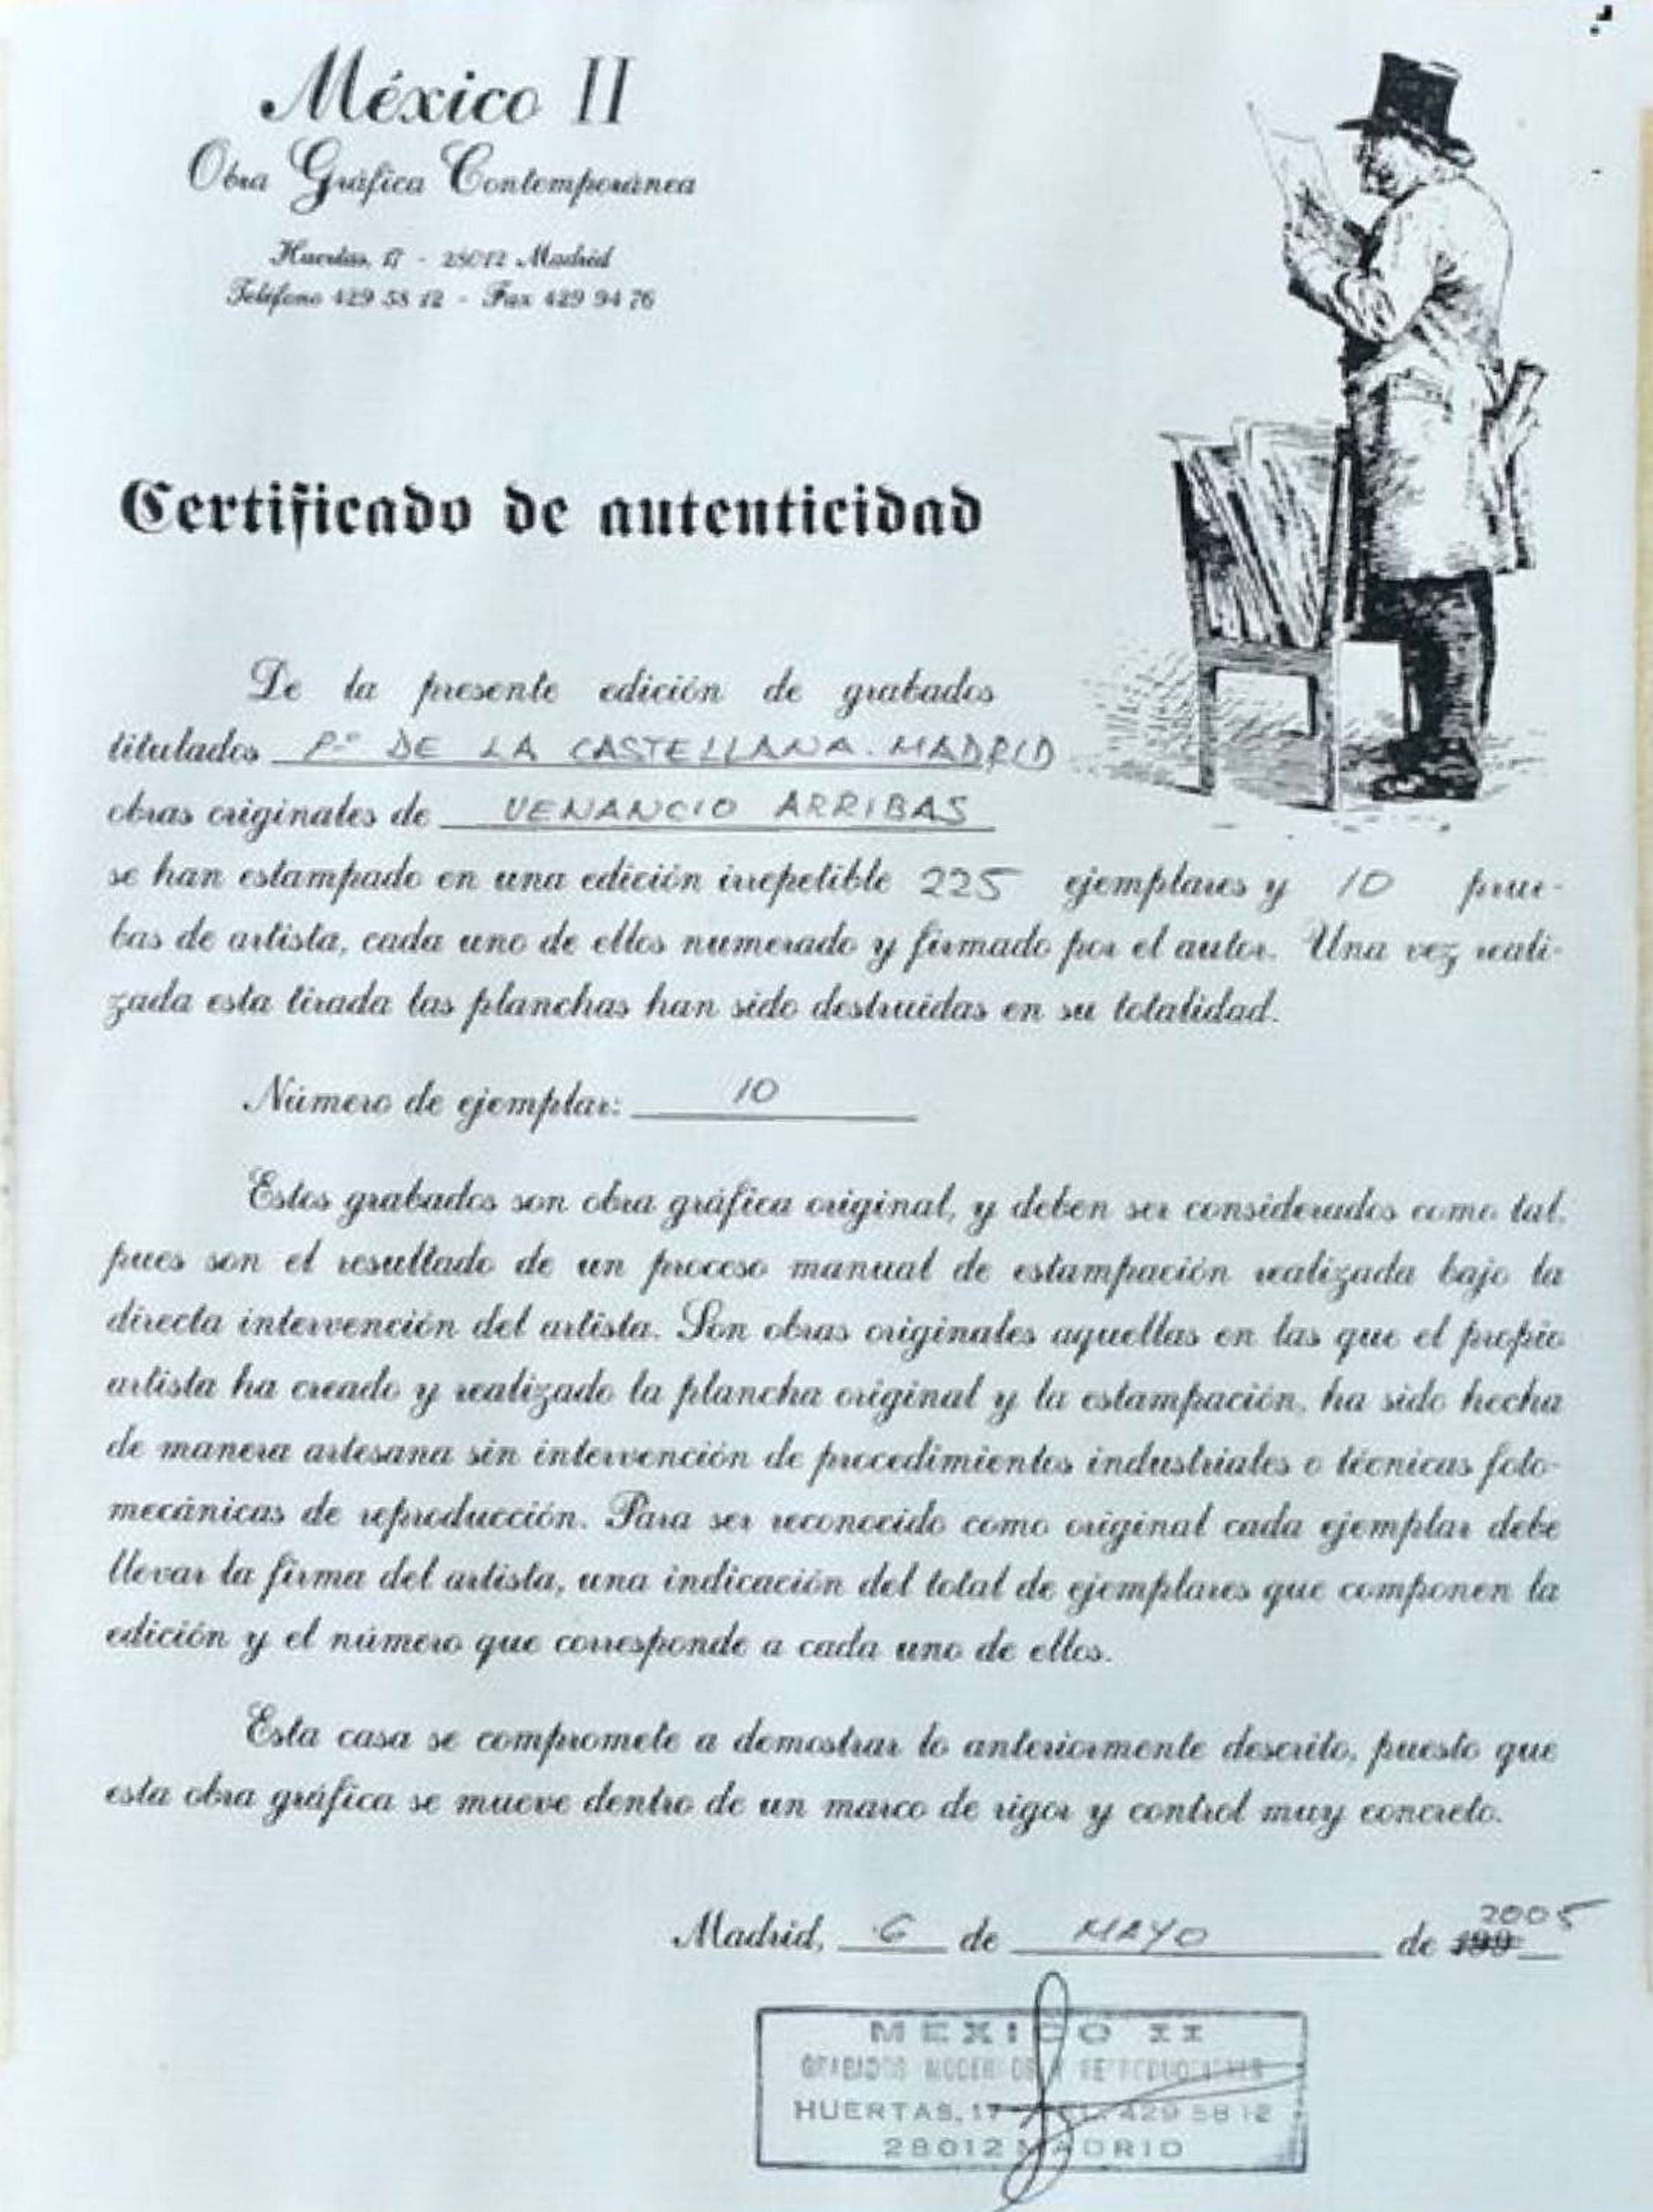 México II
Obra Gráfica Contemporánea
Huertas, 17 - 28012 Madrid
Teléfono 429 58 12 - Fax 429 94 76
Certificado de autenticidad
De la presente edición de grabados
titulados Pº DE LA CASTELLANA. MADRID
obras originales de VENANCIO ARRIBAS
se han estampado en una edición irrepetible 225 ejemplares y 10 prue-
bas de artista, cada uno de ellos numerado y firmado por el autor. Una vez reali-
zada esta tirada las planchas han sido destruidas en su totalidad.
Número de ejemplar: 10
Estos grabados son obra gráfica original, y deben ser considerados como tal,
pues son el resultado de un proceso manual de estampación realizada bajo la
directa intervención del artista. Son obras originales aquellas en las que el propio
artista ha creado y realizado la plancha original y la estampación, ha sido hecha
de manera artesana sin intervención de procedimientos industriales o técnicas foto-
mecánicas de reproducción. Para ser reconocido como original cada ejemplar debe
llevar la firma del artista, una indicación del total de ejemplares que componen la
edición y el número que corresponde a cada uno de ellos.
Esta casa se compromete a demostrar lo anteriormente descrito, puesto que
esta obra gráfica se mueve dentro de un marco de rigor y control muy concreto.
2005
Madrid, 6 de MAYO de 199
MEXICO II
GRABADOS MODERNOS Y REPRODUCCIONES
HUERTAS, 17 - TEL. 429 58 12
28012 MADRID